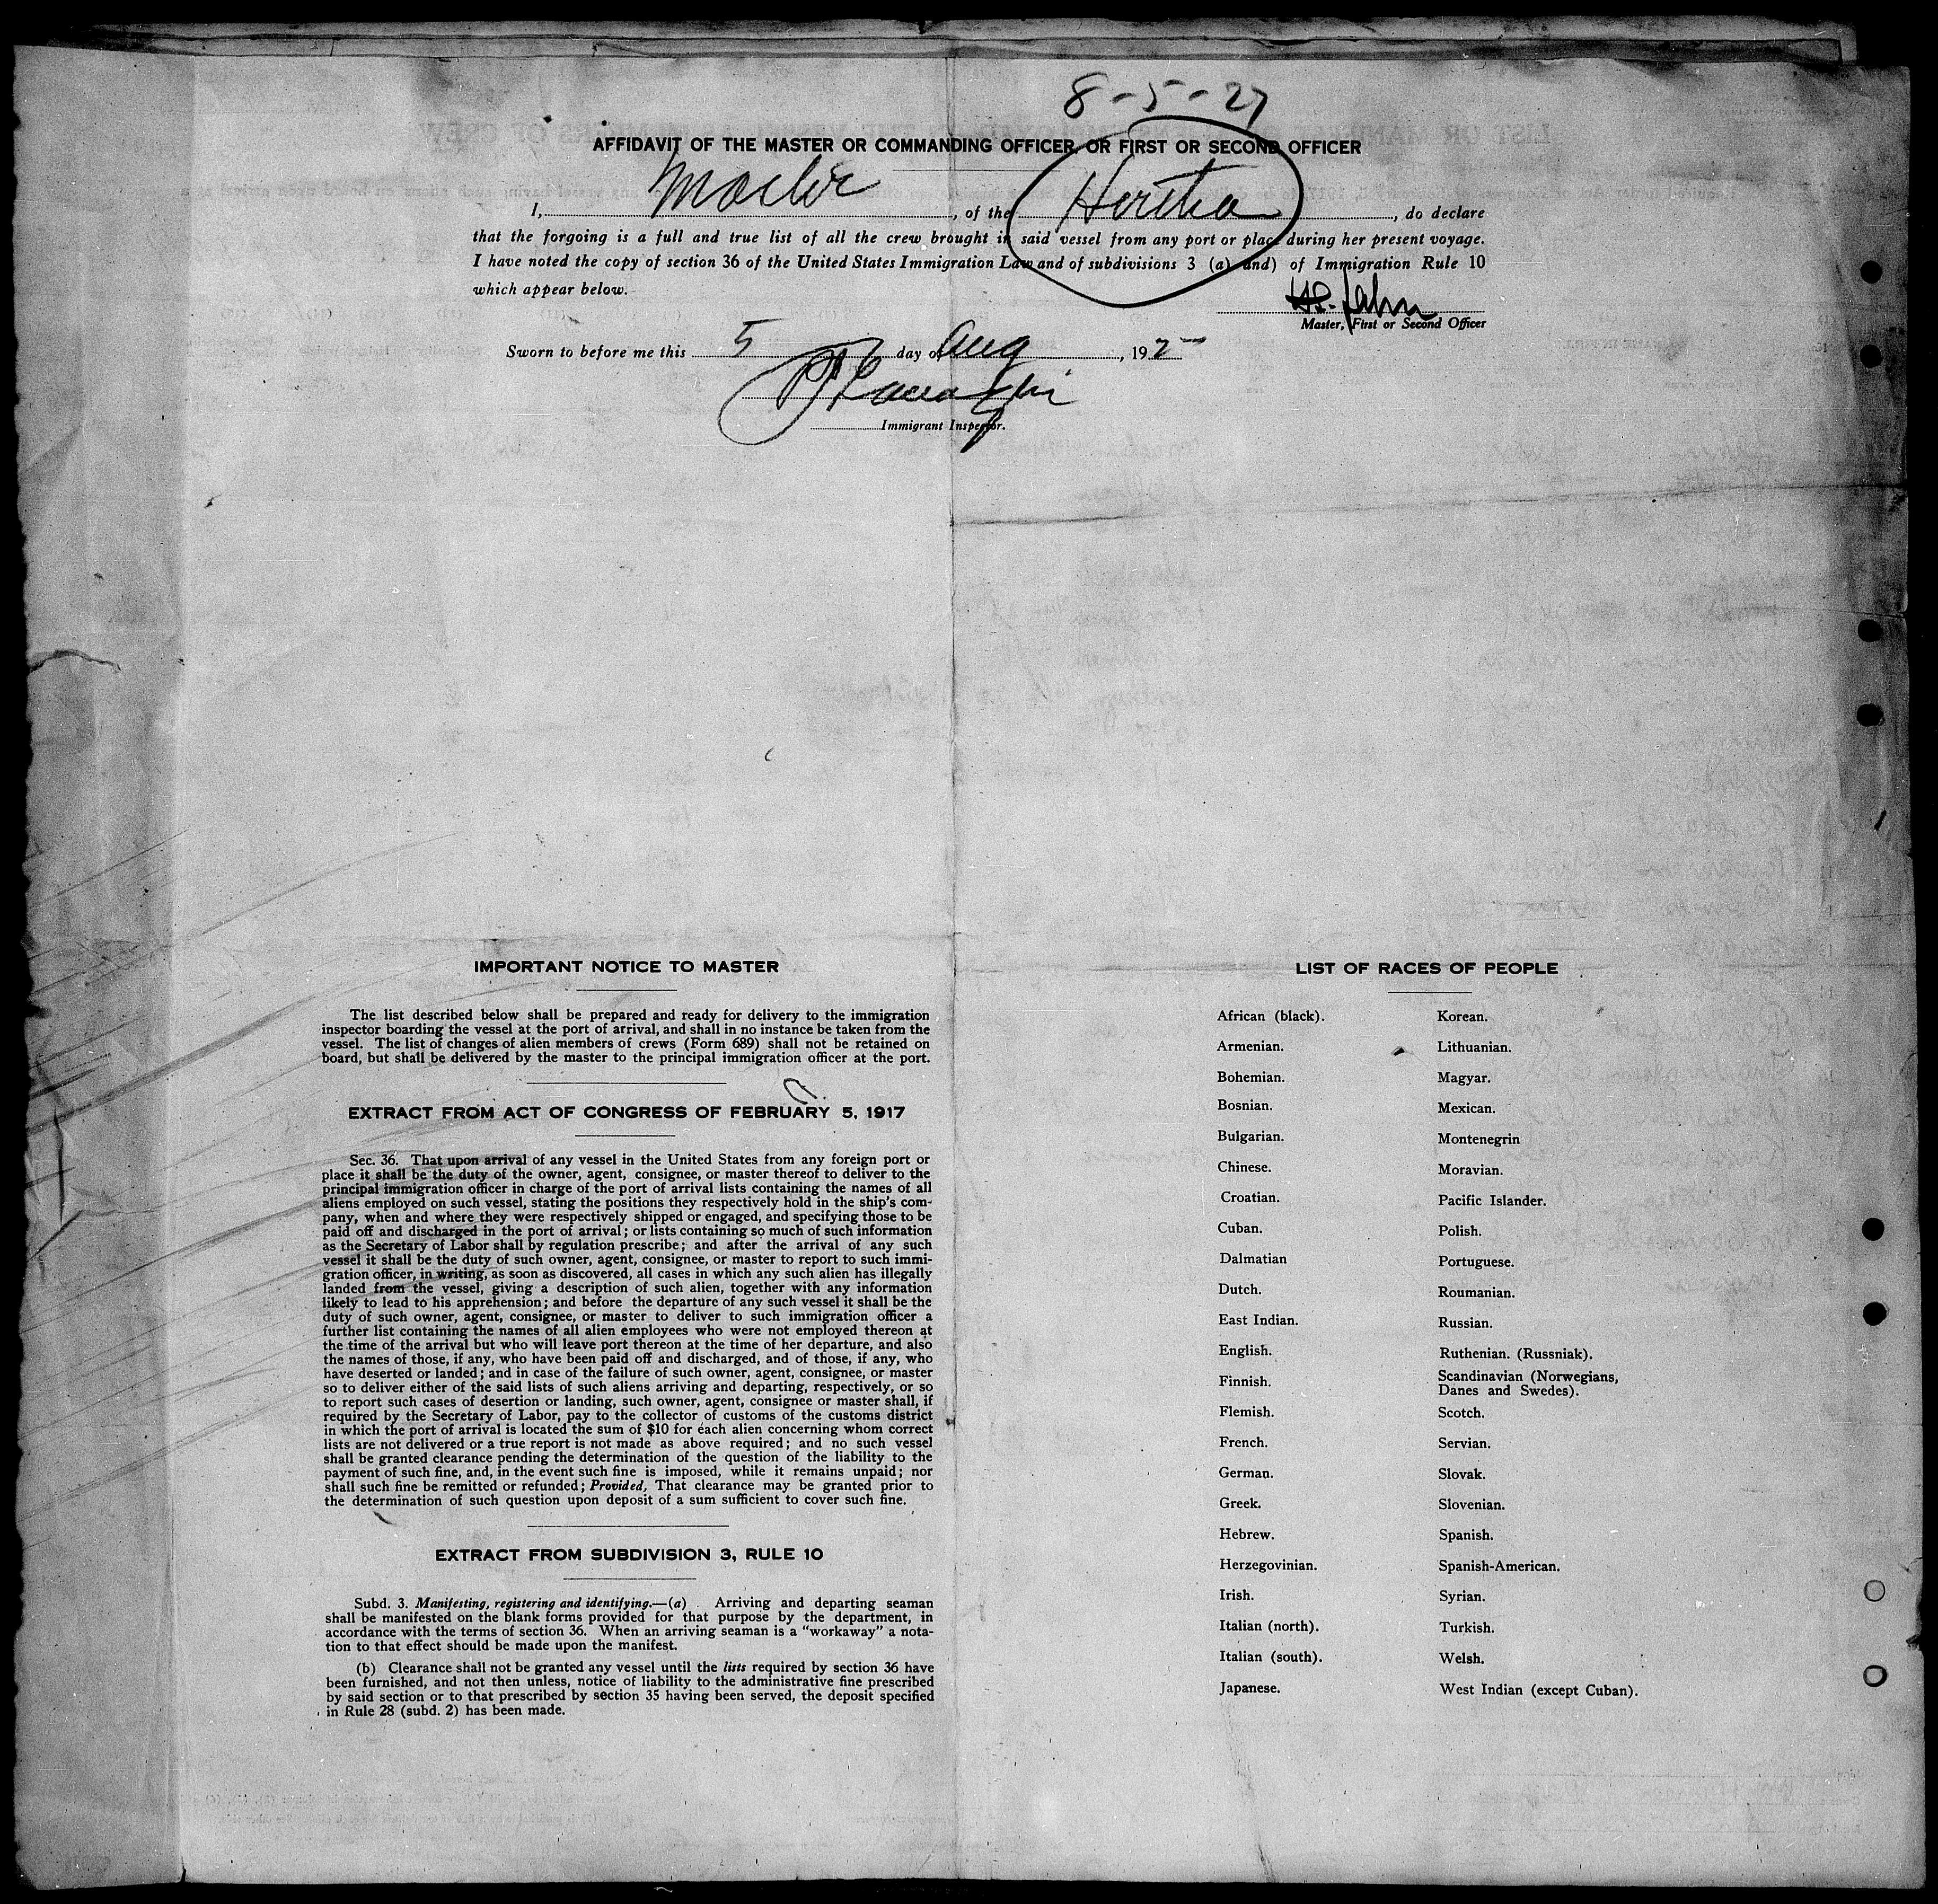 8-5-27
AFFIDAVIT OF THE MASTER OR COMMANDING OFFICER, OR FIRST OR SECOND OFFICER
I, Master, of the Hertha, do declare
that the forgoing is a full and true list of all the crew brought in said vessel from any port or place during her present voyage.
I have noted the copy of section 36 of the United States Immigration Law and of subdivisions 3 (a) and) of Immigration Rule 10
which appear below.
Master, First or Second Officer
Sworn to before me this 5 day of Aug, 192
Immigrant Inspector.
IMPORTANT NOTICE TO MASTER
The list described below shall be prepared and ready for delivery to the immigration
inspector boarding the vessel at the port of arrival, and shall in no instance be taken from the
vessel. The list of changes of alien members of crews (Form 689) shall not be retained on
board, but shall be delivered by the master to the principal immigration officer at the port.
EXTRACT FROM ACT OF CONGRESS OF FEBRUARY 5, 1917
Sec. 36. That upon arrival of any vessel in the United States from any foreign port or
place it shall be the duty of the owner, agent, consignee, or master thereof to deliver to the
principal immigration officer in charge of the port of arrival lists containing the names of all
aliens employed on such vessel, stating the positions they respectively hold in the ship's com-
pany, when and where they were respectively shipped or engaged, and specifying those to be
paid off and discharged in the port of arrival; or lists containing so much of such information
as the Secretary of Labor shall by regulation prescribe; and after the arrival of any such
vessel it shall be the duty of such owner, agent, consignee, or master to report to such immi-
gration officer, in writing, as soon as discovered, all cases in which any such alien has illegally
landed from the vessel, giving a description of such alien, together with any information
likely to lead to his apprehension; and before the departure of any such vessel it shall be the
duty of such owner, agent, consignee, or master to deliver to such immigration officer a
further list containing the names of all alien employees who were not employed thereon at
the time of the arrival but who will leave port thereon at the time of her departure, and also
the names of those, if any, who have been paid off and discharged, and of those, if any, who
have deserted or landed; and in case of the failure of such owner, agent, consignee, or master
so to deliver either of the said lists of such aliens arriving and departing, respectively, or so
to report such cases of desertion or landing, such owner, agent, consignee or master shall, if
required by the Secretary of Labor, pay to the collector of customs of the customs district
in which the port of arrival is located the sum of $10 for each alien concerning whom correct
lists are not delivered or a true report is not made as above required; and no such vessel
shall be granted clearance pending the determination of the question of the liability to the
payment of such fine, and, in the event such fine is imposed, while it remains unpaid; nor
shall such fine be remitted or refunded; Provided, That clearance may be granted prior to
the determination of such question upon deposit of a sum sufficient to cover such fine.
EXTRACT FROM SUBDIVISION 3, RULE 10
Subd. 3. Manifesting, registering and identifying.—(a) Arriving and departing seaman
shall be manifested on the blank forms provided for that purpose by the department, in
accordance with the terms of section 36. When an arriving seaman is a "workaway" a nota-
tion to that effect should be made upon the manifest.
(b) Clearance shall not be granted any vessel until the lists required by section 36 have
been furnished, and not then unless, notice of liability to the administrative fine prescribed
by said section or to that prescribed by section 35 having been served, the deposit specified
in Rule 28 (subd. 2) has been made.
LIST OF RACES OF PEOPLE
African (black).
Armenian.
Bohemian.
Bosnian.
Bulgarian.
Chinese.
Croatian.
Cuban.
Dalmatian
Dutch.
East Indian.
English.
Finnish.
Flemish.
French.
German.
Greek.
Hebrew.
Herzegovinian.
Irish.
Italian (north).
Italian (south).
Japanese.
Korean.
Lithuanian.
Magyar.
Mexican.
Montenegrin
Moravian.
Pacific Islander.
Polish.
Portuguese.
Roumanian.
Russian.
Ruthenian. (Russniak).
Scandinavian (Norwegians,
Danes and Swedes).
Scotch.
Servian.
Slovak.
Slovenian.
Spanish.
Spanish-American.
Syrian.
Turkish.
Welsh.
West Indian (except Cuban).